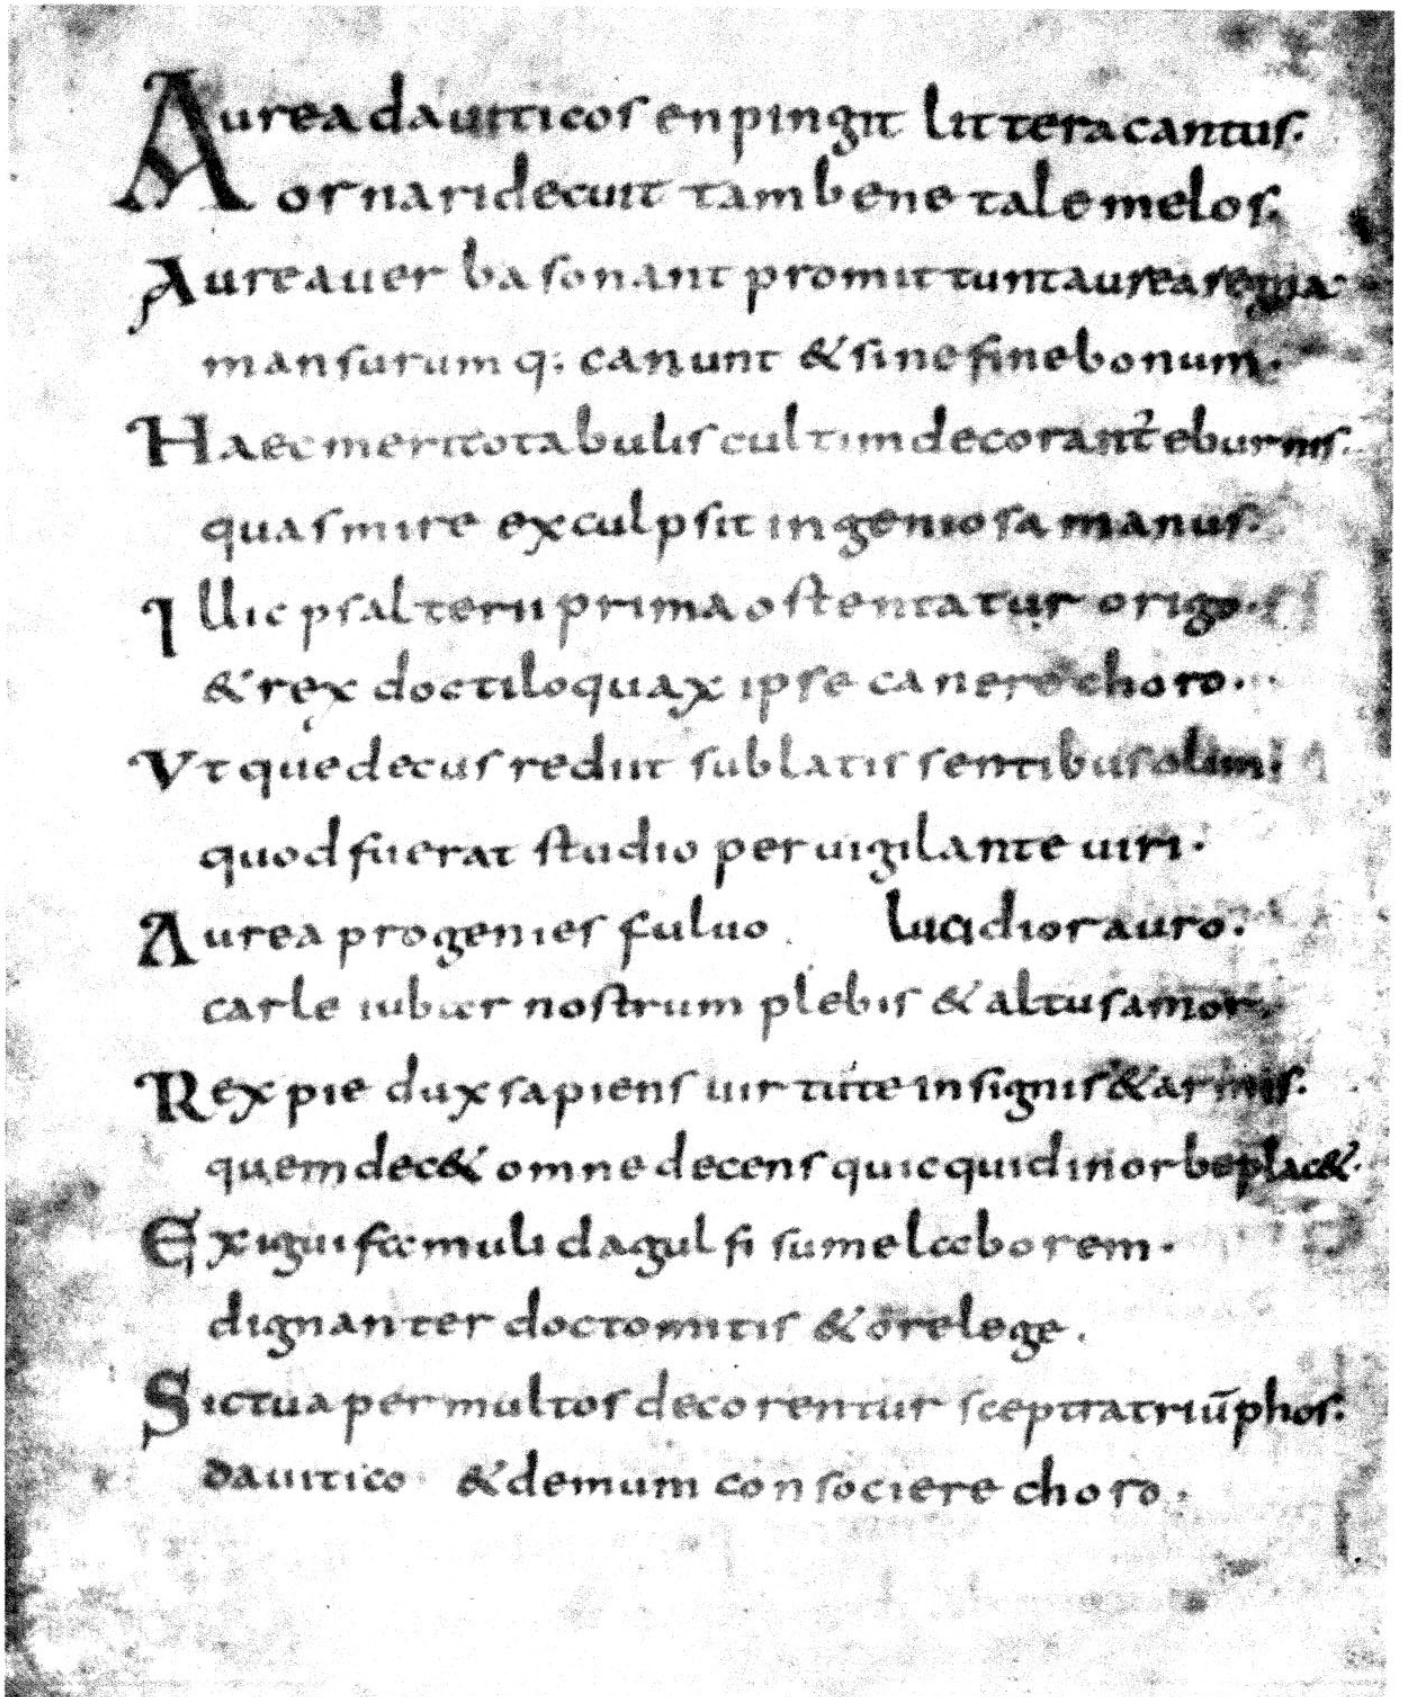 Aurea dauiticos en pingit littera cantus.
ornari decuit tam bene tale melos.
Aurea uerba sonant promittunt aurea regna.
mansurumq; canunt & sine fine bonum.
Haec merito tabulis cultim decorant̉ eburnis.
quas mire exculpsit ingeniosa manus.
Illic psalterii prima ostentatur origo.
& rex doctiloquax ipse canere choro.
Utque decus rediit sublatis sentibus olim.
quod fuerat studio peruigilante uiri.
Aurea progenies fuluo lucidior auro.
carle iubar nostrum plebis & altus amor.
Rex pie dux sapiens uirtute insignis & armis.
quem dec& omne decens quicquid in orbe plac&.
Exigui famuli dagulfi sume laborem.
dignanter docto mitis & ore lege.
Sic tua per multos decorentur sceptra triūphos.
dauitico & demum consociere choro.